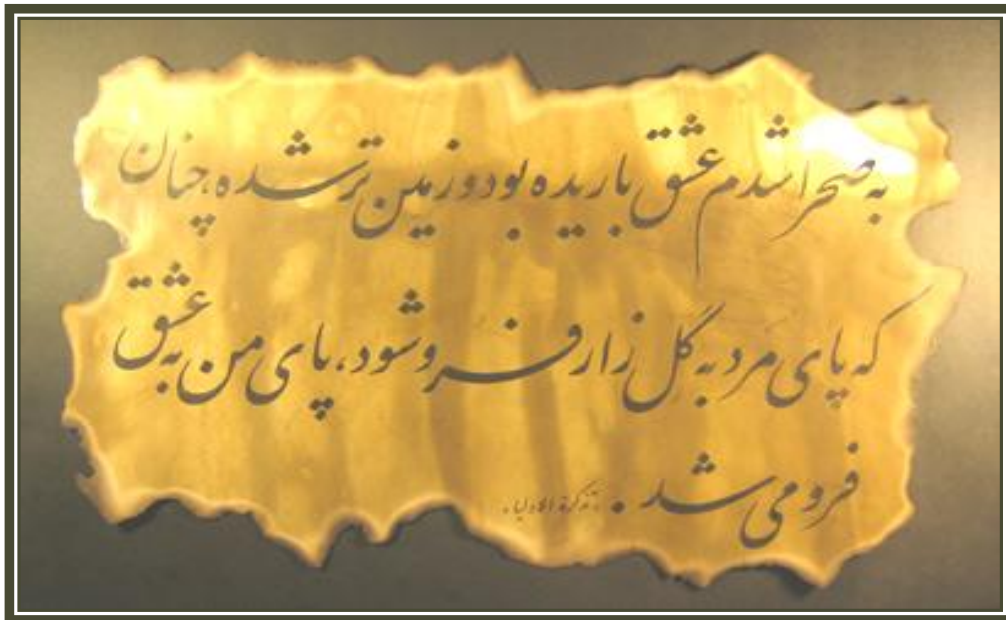 به صحرا شدم عشق باریده بود و زمین تر شده، چنان
که پای مرد به گل زار فرو شود، پای من به عشق
فرو می شد . تذکرة الاولیا .